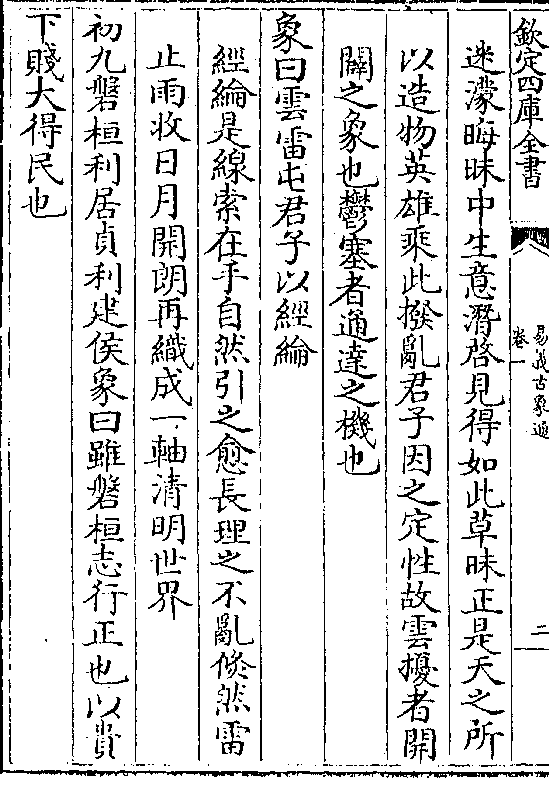 欽定四庫全書
易義古象通
卷一
二
迷濛晦昧中生意潛啓見得如此草昧正是天之所
以造物英雄乘此撥亂君子因之定性故雲擾者開
闢之象也鬱塞者通達之機也
象曰雲雷屯君子以經綸
經綸是線索在手自然引之愈長理之不亂倐然雷
止雨收日月開朗再織成一軸清明世界
初九磐桓利居貞利建侯象曰雖磐桓志行正也以貴
下賤大得民也